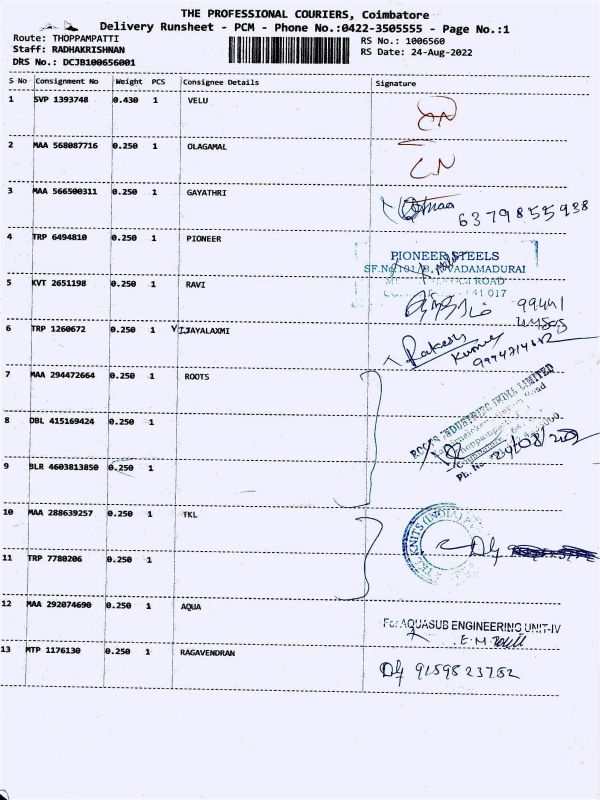 THE PROFESSIONAL COURIERS, Coimbatore
Delivery Runsheet - PCM - Phone No.:0422-3505555 - Page No.:1
Route: THOPPAMPATTI
RS No.: 1006560
Staff: RADHAKRISHNAN
RS Date: 24-Aug-2022
DRS No.: DCJB100656001
S No Consignment No Weight PCS Consignee Details Signature
1 SVP 1393748 0.430 1 VELU
2 MAA 568087716 1 0.250 1 OLAGAMAL
CN
3 MAA 566500311 0.250 1 GAYATHRI
6379855938
4 TRP 6494810 0.250 1 PIONEER
PIONEER STEELS
VADAMADURAI
ROAD
641 017
5 KVT 2651198 0.250 1 RAVI
99441
6 TRP 1260672 0.250 1 VIJAYALAXMI
Rakesh
Kumar
7 MAA 294472664 0.250 1 ROOTS
ROOTS INDUSTRIES INDIA LIMITED
8 DBL 415169424 0.250 1
24/08/202
Ph. No
9 BLR 4603813850 0.250 1
10 MAA 288639257 0.250 1 TKL
KNITS (INDIA)
11 TRP 7780206 0.250 1
12 MAA 292074690 0.250 1 AQUA
For AQUASUB ENGINEERING UNIT-IV
E.M.
13 MTP 1176130 0.250 1 RAGAVENDRAN
9159823752